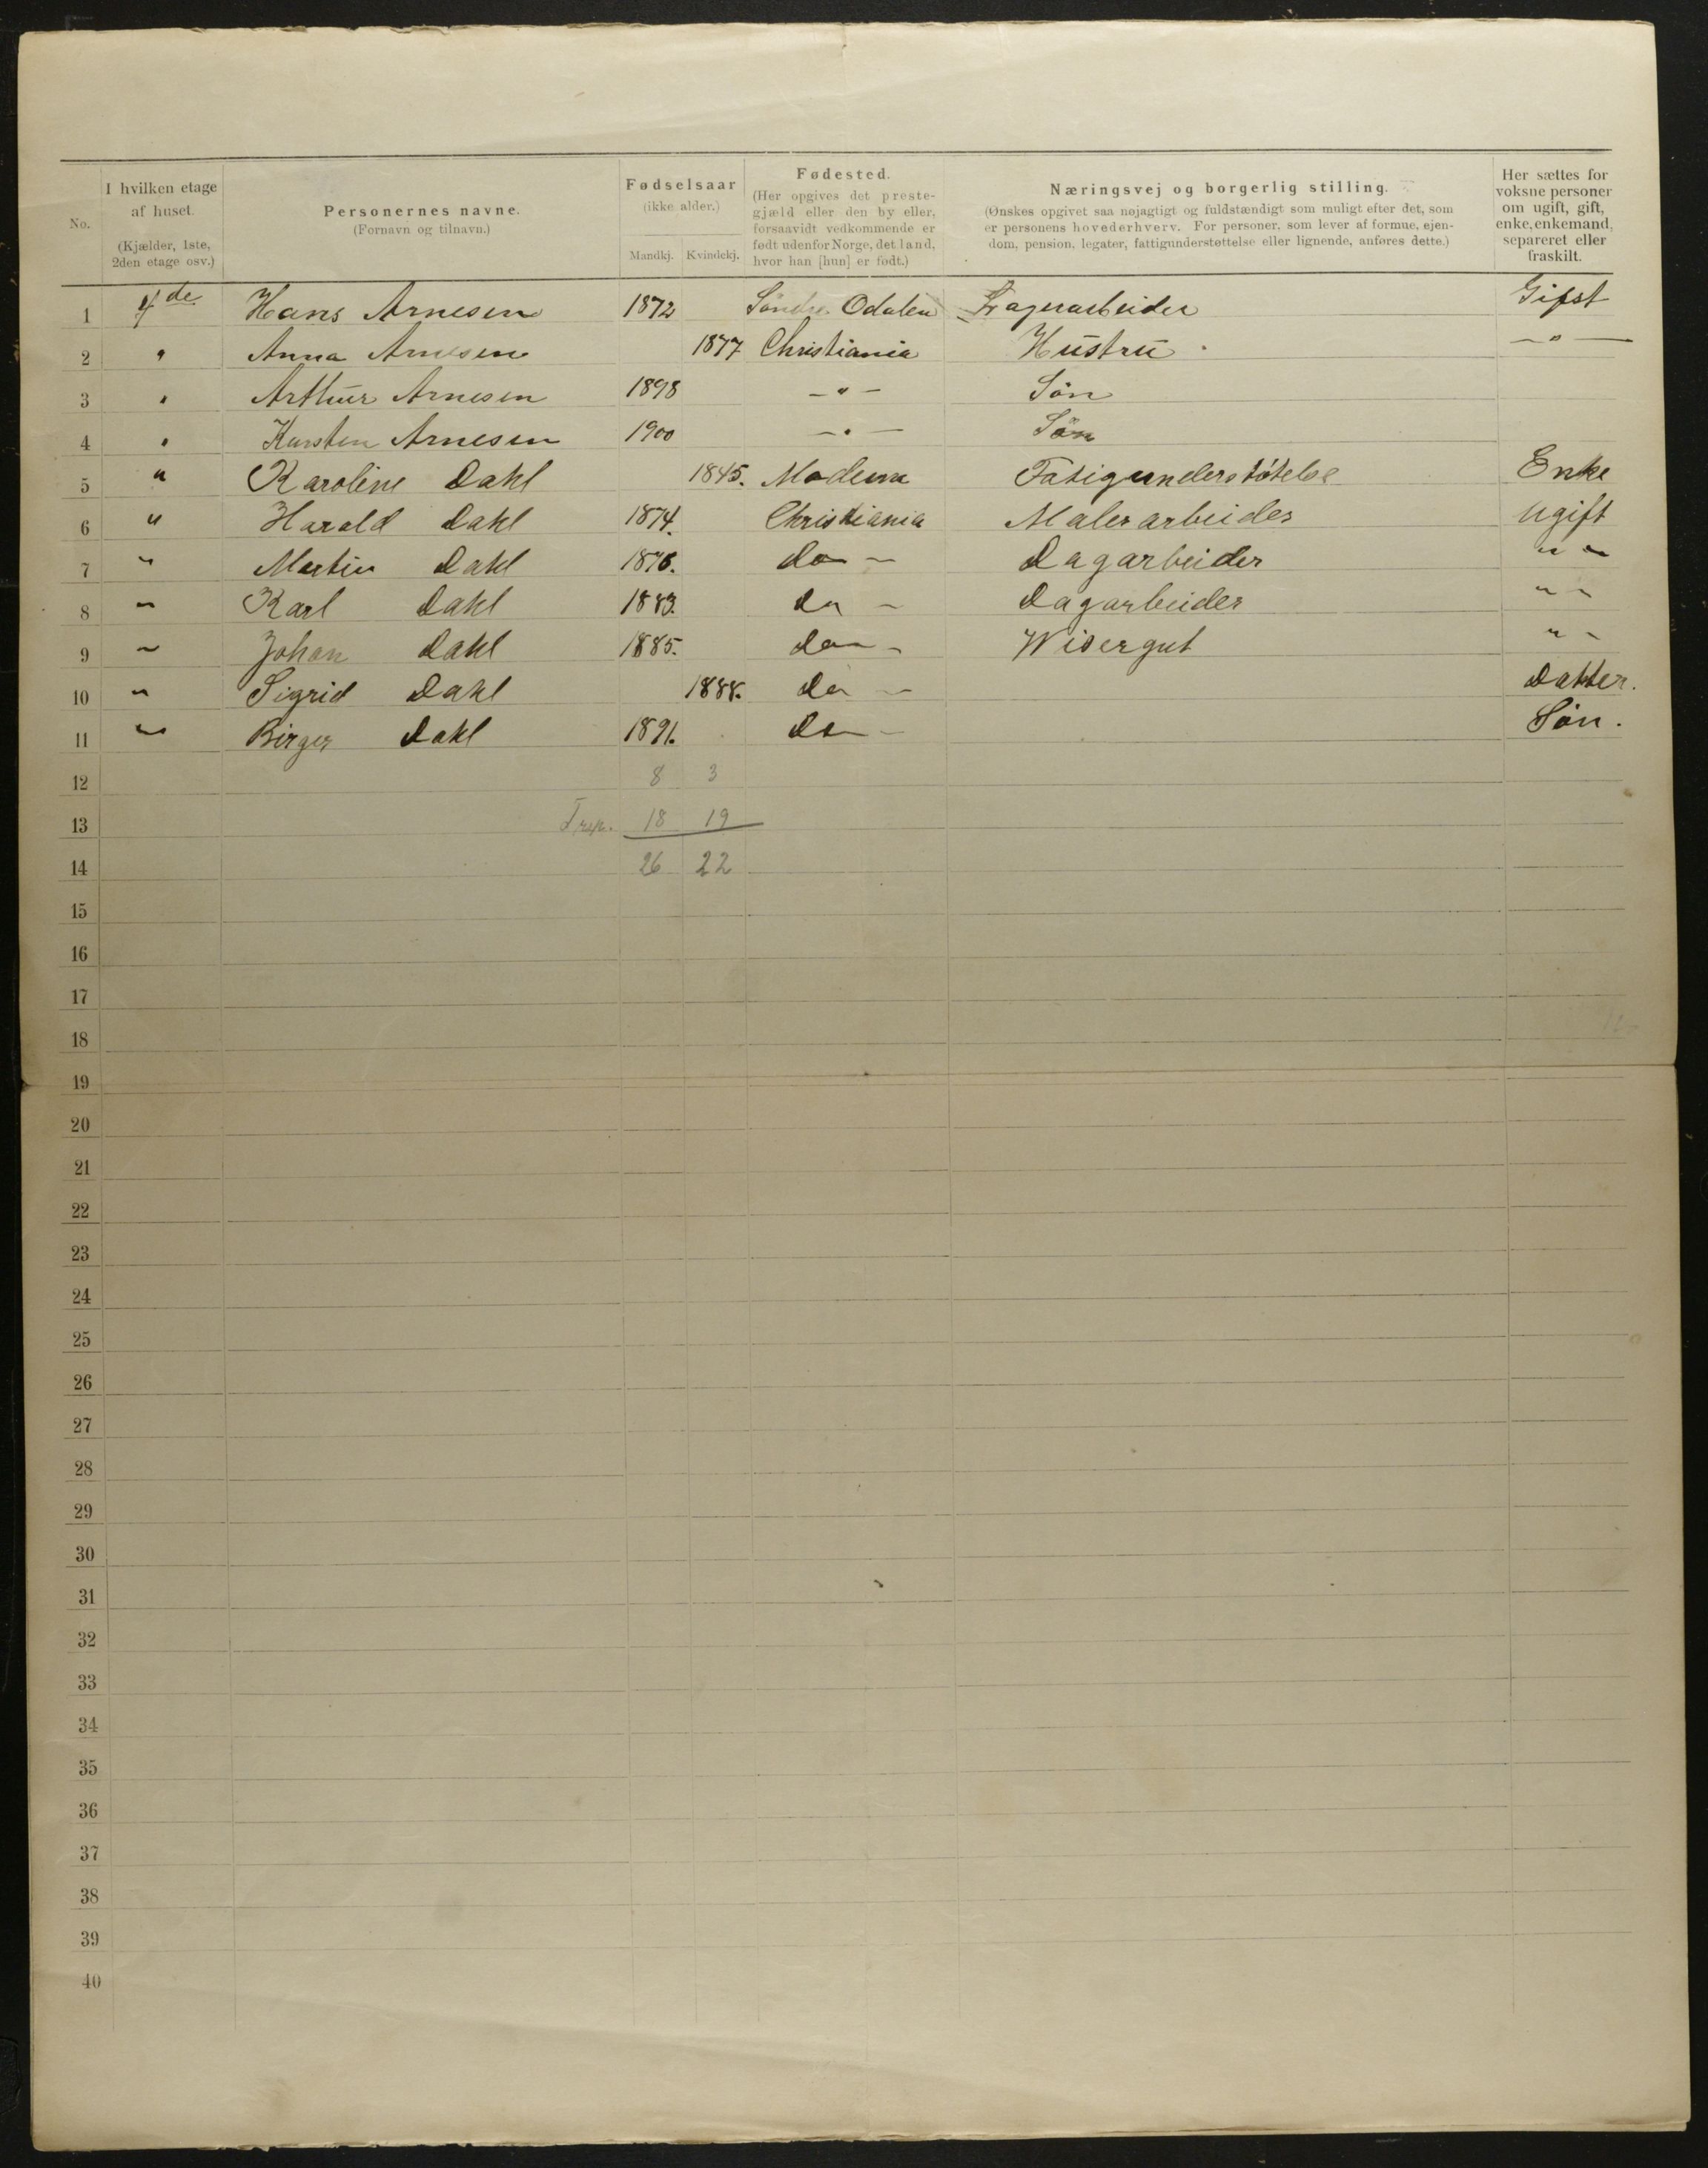 No.
I hvilken etage af huset.
(Kjælder, 1ste, 2den etage osv.)
Personernes navne.
(Fornavn og tilnavn.)
Fødselsaar
(ikke alder.)
Mandkj. Kvindekj.
Fødested.
(Her opgives det preste-
gjæld eller den by eller,
forsaavidt vedkommende er
født udenfor Norge, det land,
hvor han [hun] er født.)
Næringsvej og borgerlig stilling.
(Ønskes opgivet saa nøjagtigt og fuldstændigt som muligt efter det, som
er personens hovederhverv. For personer, som lever af formue, ejen-
dom, pension, legater, fattigunderstøttelse eller lignende, anføres dette.)
Her sættes for
voksne personer
om ugift, gift,
enke, enkemand,
separeret eller
fraskilt.
1 4de Hans Arnesen 1872 Söndre Odalen Lagerarbeider Gift
2 " Anna Arnesen 1877 Christiania Hustru —"—
3 " Arthur Arnesen 1898 —"— Sön
4 " Karsten Arnesen 1900 —"— Sön
5 " Karoline Dahl 1845. Modum Fatigunderstøtelse Enke
6 " Harald Dahl 1874. Christiania Malerarbeider Ugift
7 " Martin Dahl 1876. do — Dagarbeider " "
8 " Karl Dahl 1883. do — Dagarbeider " "
9 " Johan Dahl 1885. do — Wisergut " "
10 " Sigrid Dahl 1888. do — Datter.
11 " Birger Dahl 1891. do — Søn.
12 8 3
13 18 19
14 26 22
15
16
17
18
19
20
21
22
23
24
25
26
27
28
29
30
31
32
33
34
35
36
37
38
39
40